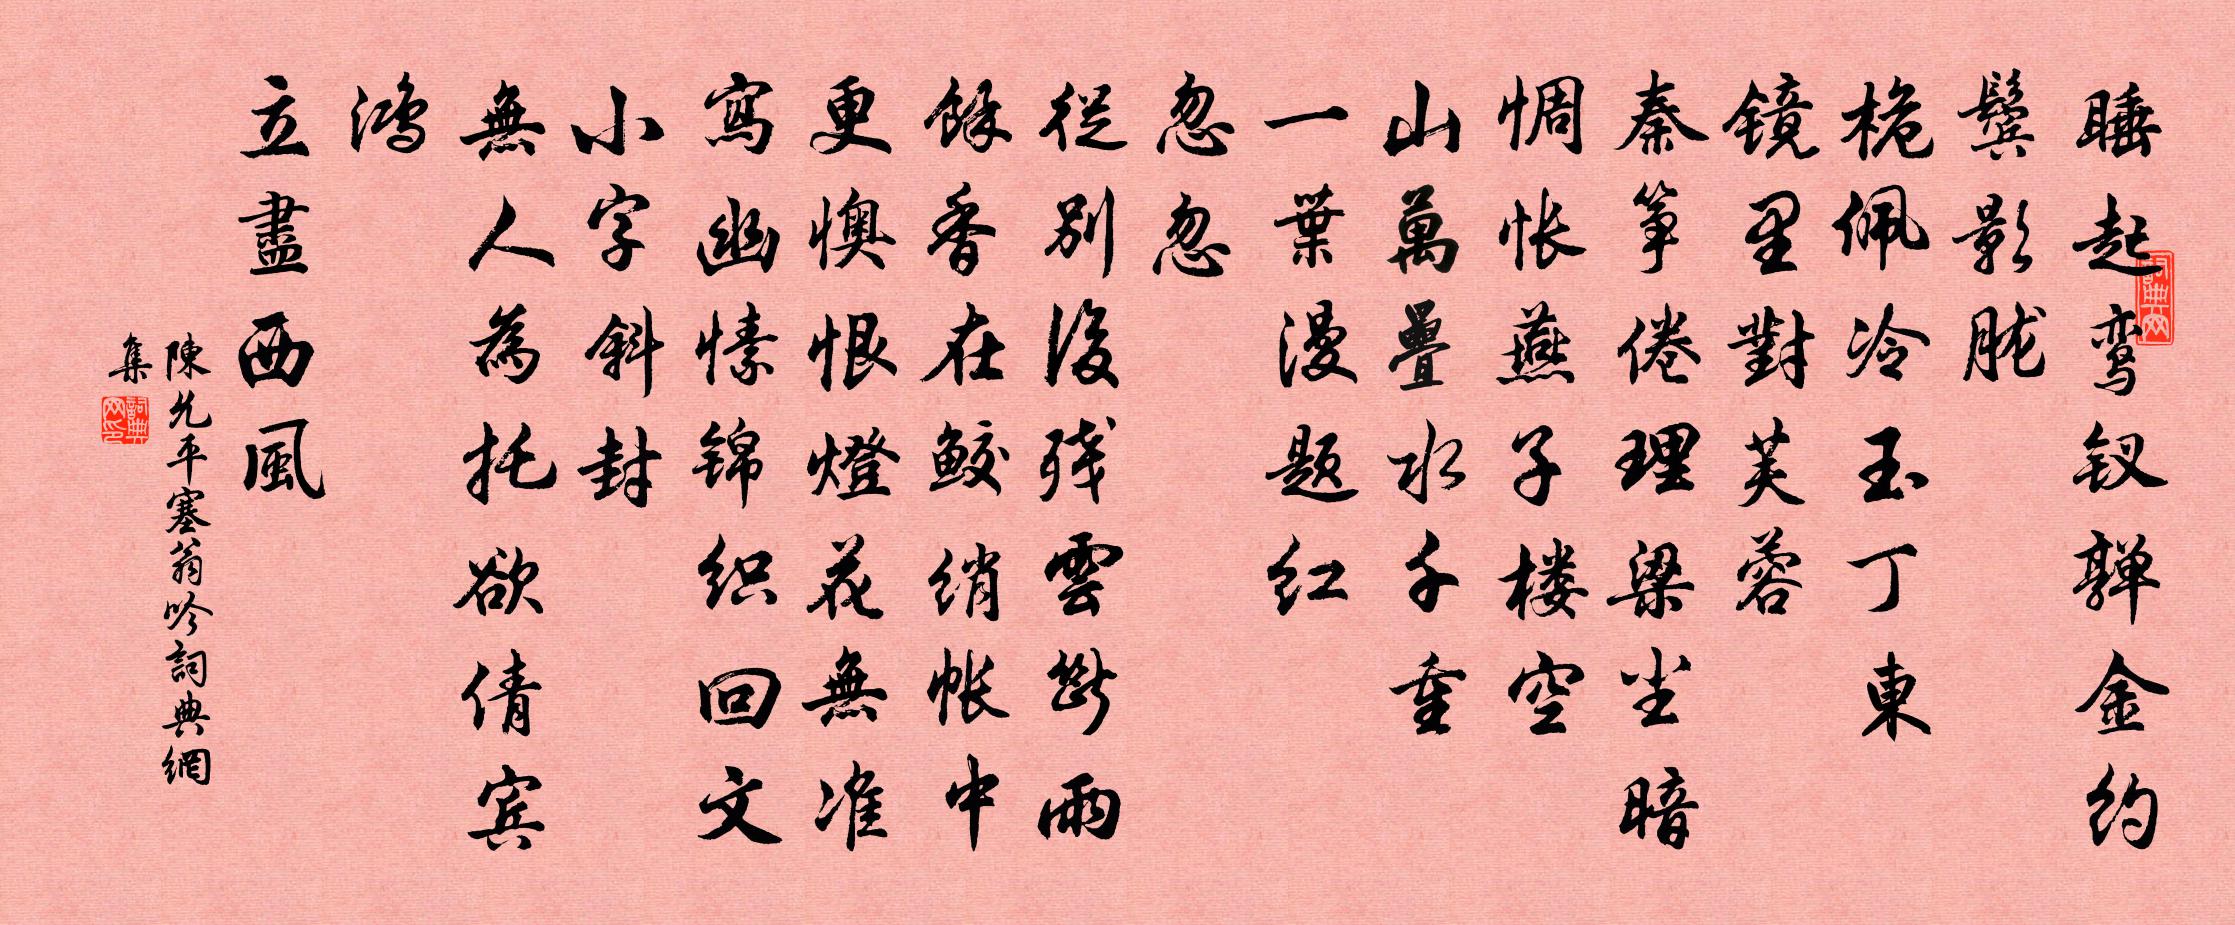 睡起鸾钗嚲金约
鬓影胧
桅佩冷玉丁東
镜里對芙蓉
秦筝倦理梁尘暗
惆怅燕子楼空
山萬疊水千重
一葉漫题红
怱怱
從别後残雲斷雨
餘香在鲛绡帐中
更懊恨燈花無准
寫幽愫锦织回文
小字斜封
無人為托欲倩宾
鸿
立盡西風
陳允平塞翁吟詞典網
集
詞典网
詞典网印